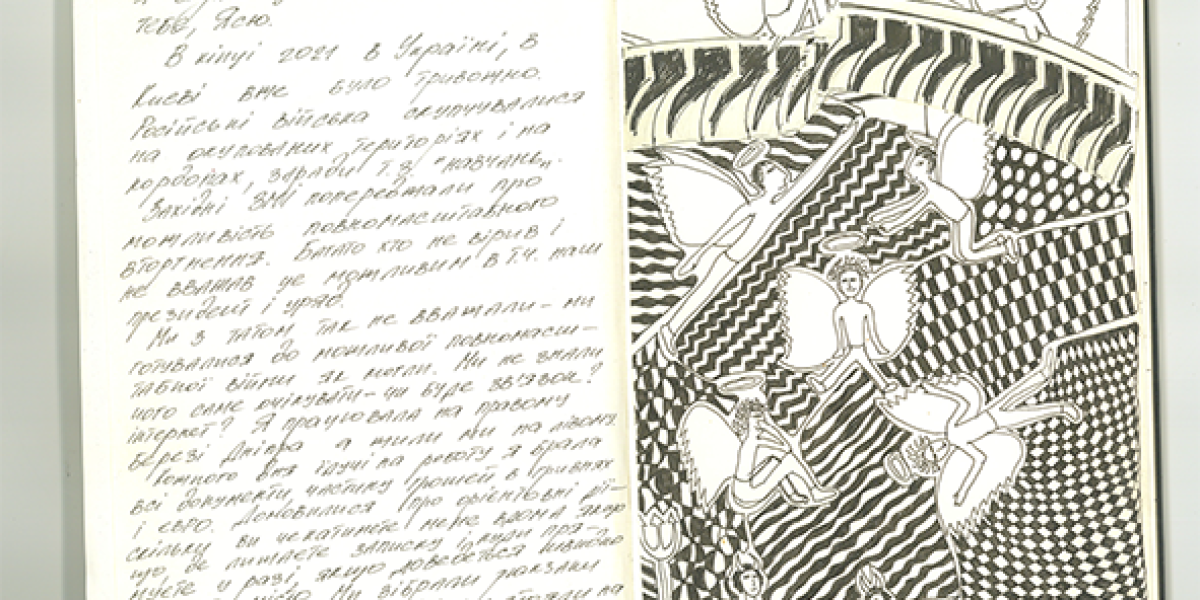 тебе, Ясю.
В кінці 2021 в Україні, в
Києві вже було тривожно.
Російські війська скупчувалися
на окупованих територіях і на
кордонах, заради т.з. "навчань".
Західні ЗМІ попереджали про
можливість повномасштабного
вторгнення. Багато хто не вірив і
не вважав це можливим в т.ч. наш
президент і уряд.
Ми з татом так не вважали – ми
готувалися до можливої повномасш-
табної війни як могли. Ми не знали
чого саме очікувати – чи буде зв'язок?
інтернет? Я працювала на правому
березі Дніпра а жили ми на лівому.
Кожного дня їдучі на роботу я брала
всі документи, частину грошей в гривнях
і євро. Домовилися про орієнтовні дії –
скільки ви чекатимете мене вдома якщо
що, де лишаєте записку і куди пря-
муєте у разі, якщо доведеться швидко
місто. Ми зібрали рюкзаки
на